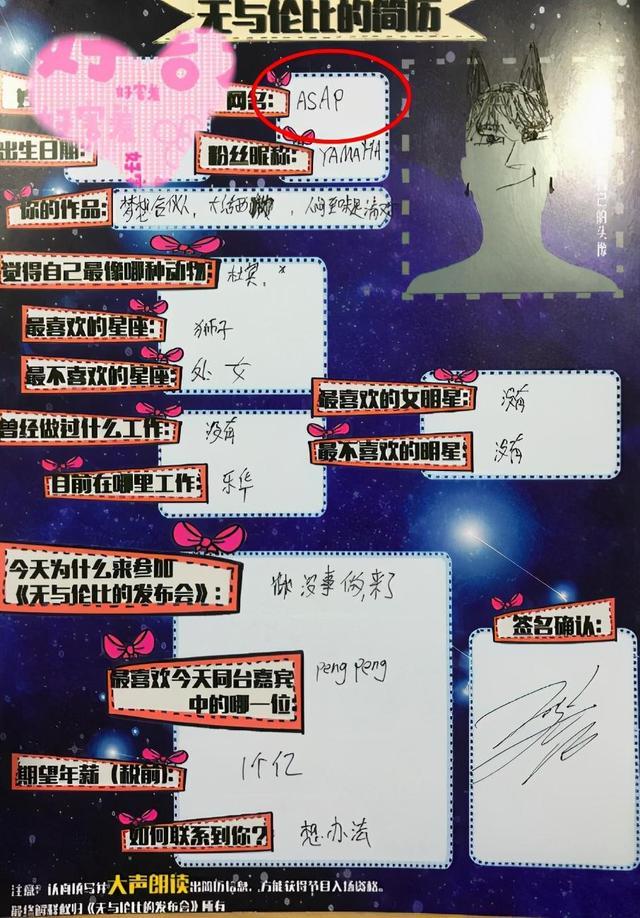 无与伦比的简历
好
网名: ASAP
出生日期:
粉丝昵称: YAMAHA
你的作品: 梦想合伙人, 大话西游, 人间至味是清欢
觉得自己最像哪种动物: 杜宾。
自己的头像
最喜欢的星座: 狮子
最不喜欢的星座: 处女
最喜欢的女明星: 没有
曾经做过什么工作: 没有
最不喜欢的明星: 没有
目前在哪里工作: 乐华
今天为什么来参加
《无与伦比的发布会》: 没事做,来了
签名确认:
最喜欢今天同台嘉宾
中的哪一位: peng peng
期望年薪(税前): 1个亿
如何联系到你? 想办法
注意: 认真填写并大声朗读出简历信息,方能获得节目入场资格。
最终解释权归《无与伦比的发布会》所有